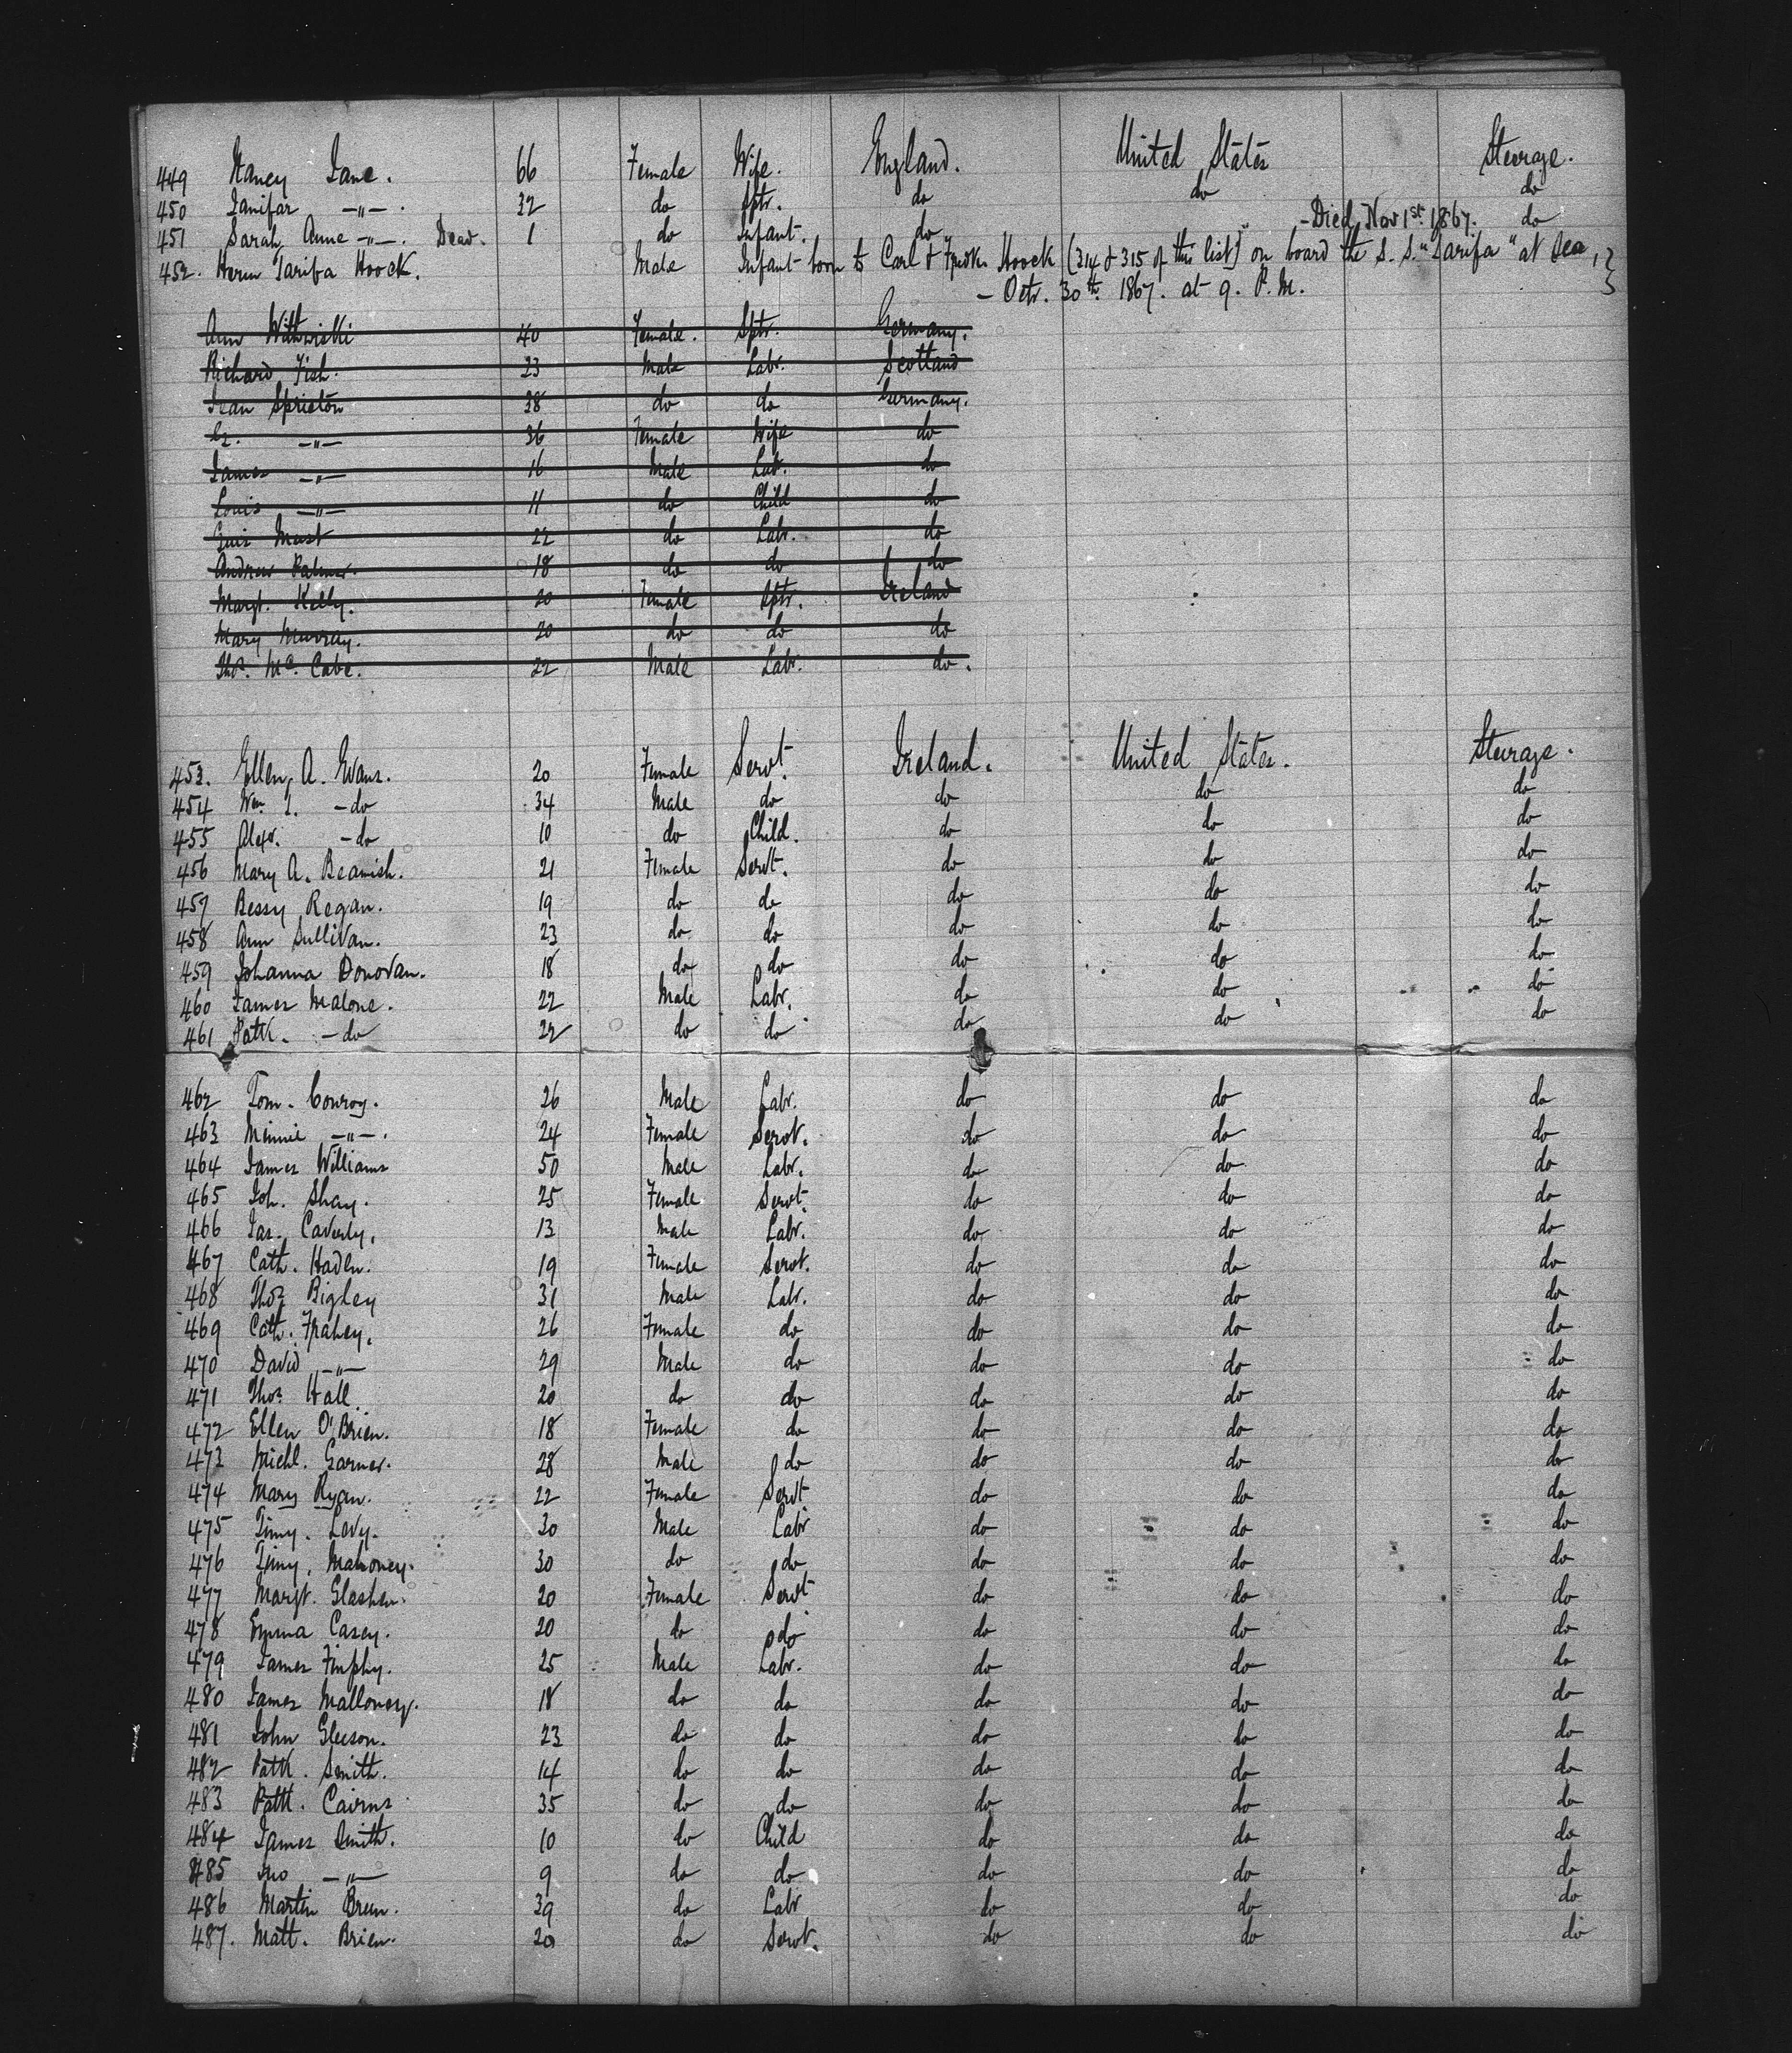 449 Nancy Jane. 66 Female Wife. England. United States Steerage.
450 Janifar —"— . 32 do Sptr. do do do
451 Sarah Anne —"—. Dead. 1 do Infant. do — Died Nov 1st 1867. do
452. Herm Tarifa Hoock. Male Infant born to Carl & Fredk. Hoock (314 & 315 of this list) on board the S. S. "Tarifa" at Sea,
— Octr. 30th 1867. at 9. P. M.
Ann 40 Female. Sptr. Germany.
Richard Fish. 23 Male Labr. Scotland
Jean Sprieton 38 do do Germany.
—"— 36 Female Wife do
James —"— 16 Male Labr. do
Louis —"— 11 do Child do
Must 22 do Labr. do
Andrew Palmer. 18 do do do
Margt. Kelly. 20 Female Sptr. Ireland
Mary Murray. 20 do do do
Thos. Mc. Cabe. 22 Male Labr. do.
453. Ellen, A. Evans. 20 Female Servt. Ireland. United States. Steerage.
454 Wm J. — do 34 Male do do do do
455 Alexr. — do 10 do Child. do do do
456 Mary A. Beamish. 21 Female Servt. do do do
457 Bessy Regan. 19 do do do do do
458 Ann Sullivan. 23 do do do do do
459 Johanna Donovan. 18 do do do do do
460 James Malone. 22 Male Labr. do do do
461 Patk. — do 22 do do do do do
462 Tom. Conroy. 26 Male Labr. do do do
463 Minnie —"—. 24 Female Servt. do do do
464 James Williams 50 Male Labr. do do do
465 Joh. Shay. 25 Female Servt. do do do
466 Jas. Caverly. 13 Male Labr. do do do
467 Cath. Haden. 19 Female Servt. do do do
468 Thos Bigley 31 Male Labr. do do do
469 Cath. Frahey. 26 Female do do do do
470 David —"— 29 Male do do do do
471 Thos Hall. 20 do do do do do
472 Ellen O'Brien. 18 Female do do do do
473 Michl. Garner. 28 Male do do do do
474 Mary Ryan. 22 Female Servt do do do
475 Timy. Levy. 30 Male Labr do do do
476 Timy. Mahoney. 30 do do do do do
477 Margt. Glashen. 20 Female Servt do do do
478 Emma Casey. 20 do do do do do
479 James Finphy. 25 Male Labr. do do do
480 James Malloney. 18 do do do do do
481 John Gleeson. 23 do do do do do
482 Patk. Smith. 14 do do do do do
483 Patk. Cairns 35 do do do do do
484 James Smith. 10 do Child do do do
485 Jno —"— 9 do do do do do
486 Martin Breen. 39 do Labr do do do
487. Matt. Brien. 20 do Servt. do do do